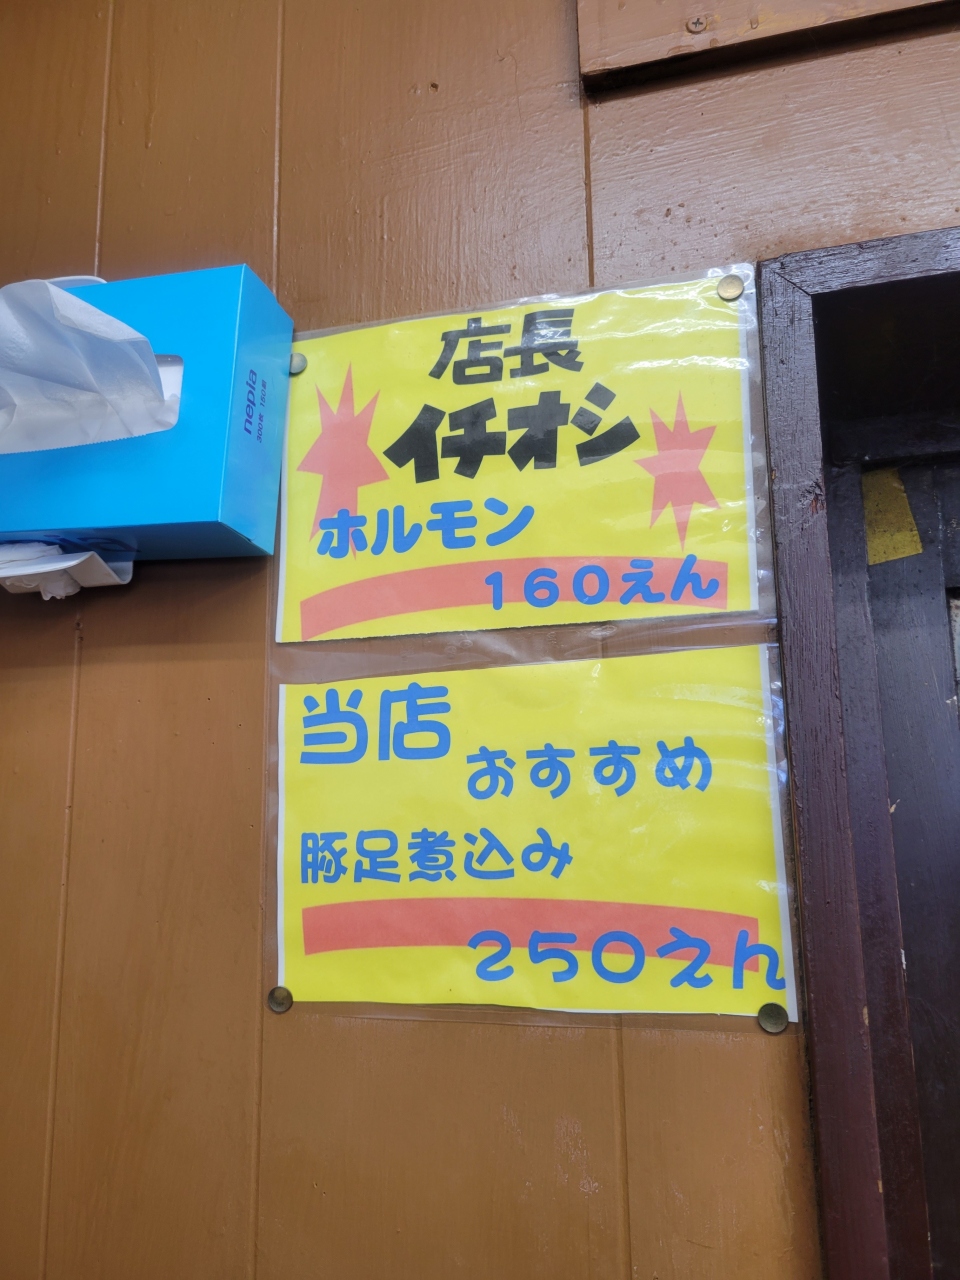 nepia
300枚 150組
店長
イチオシ
ホルモン
160えん
当店
おすすめ
豚足煮込み
250えん